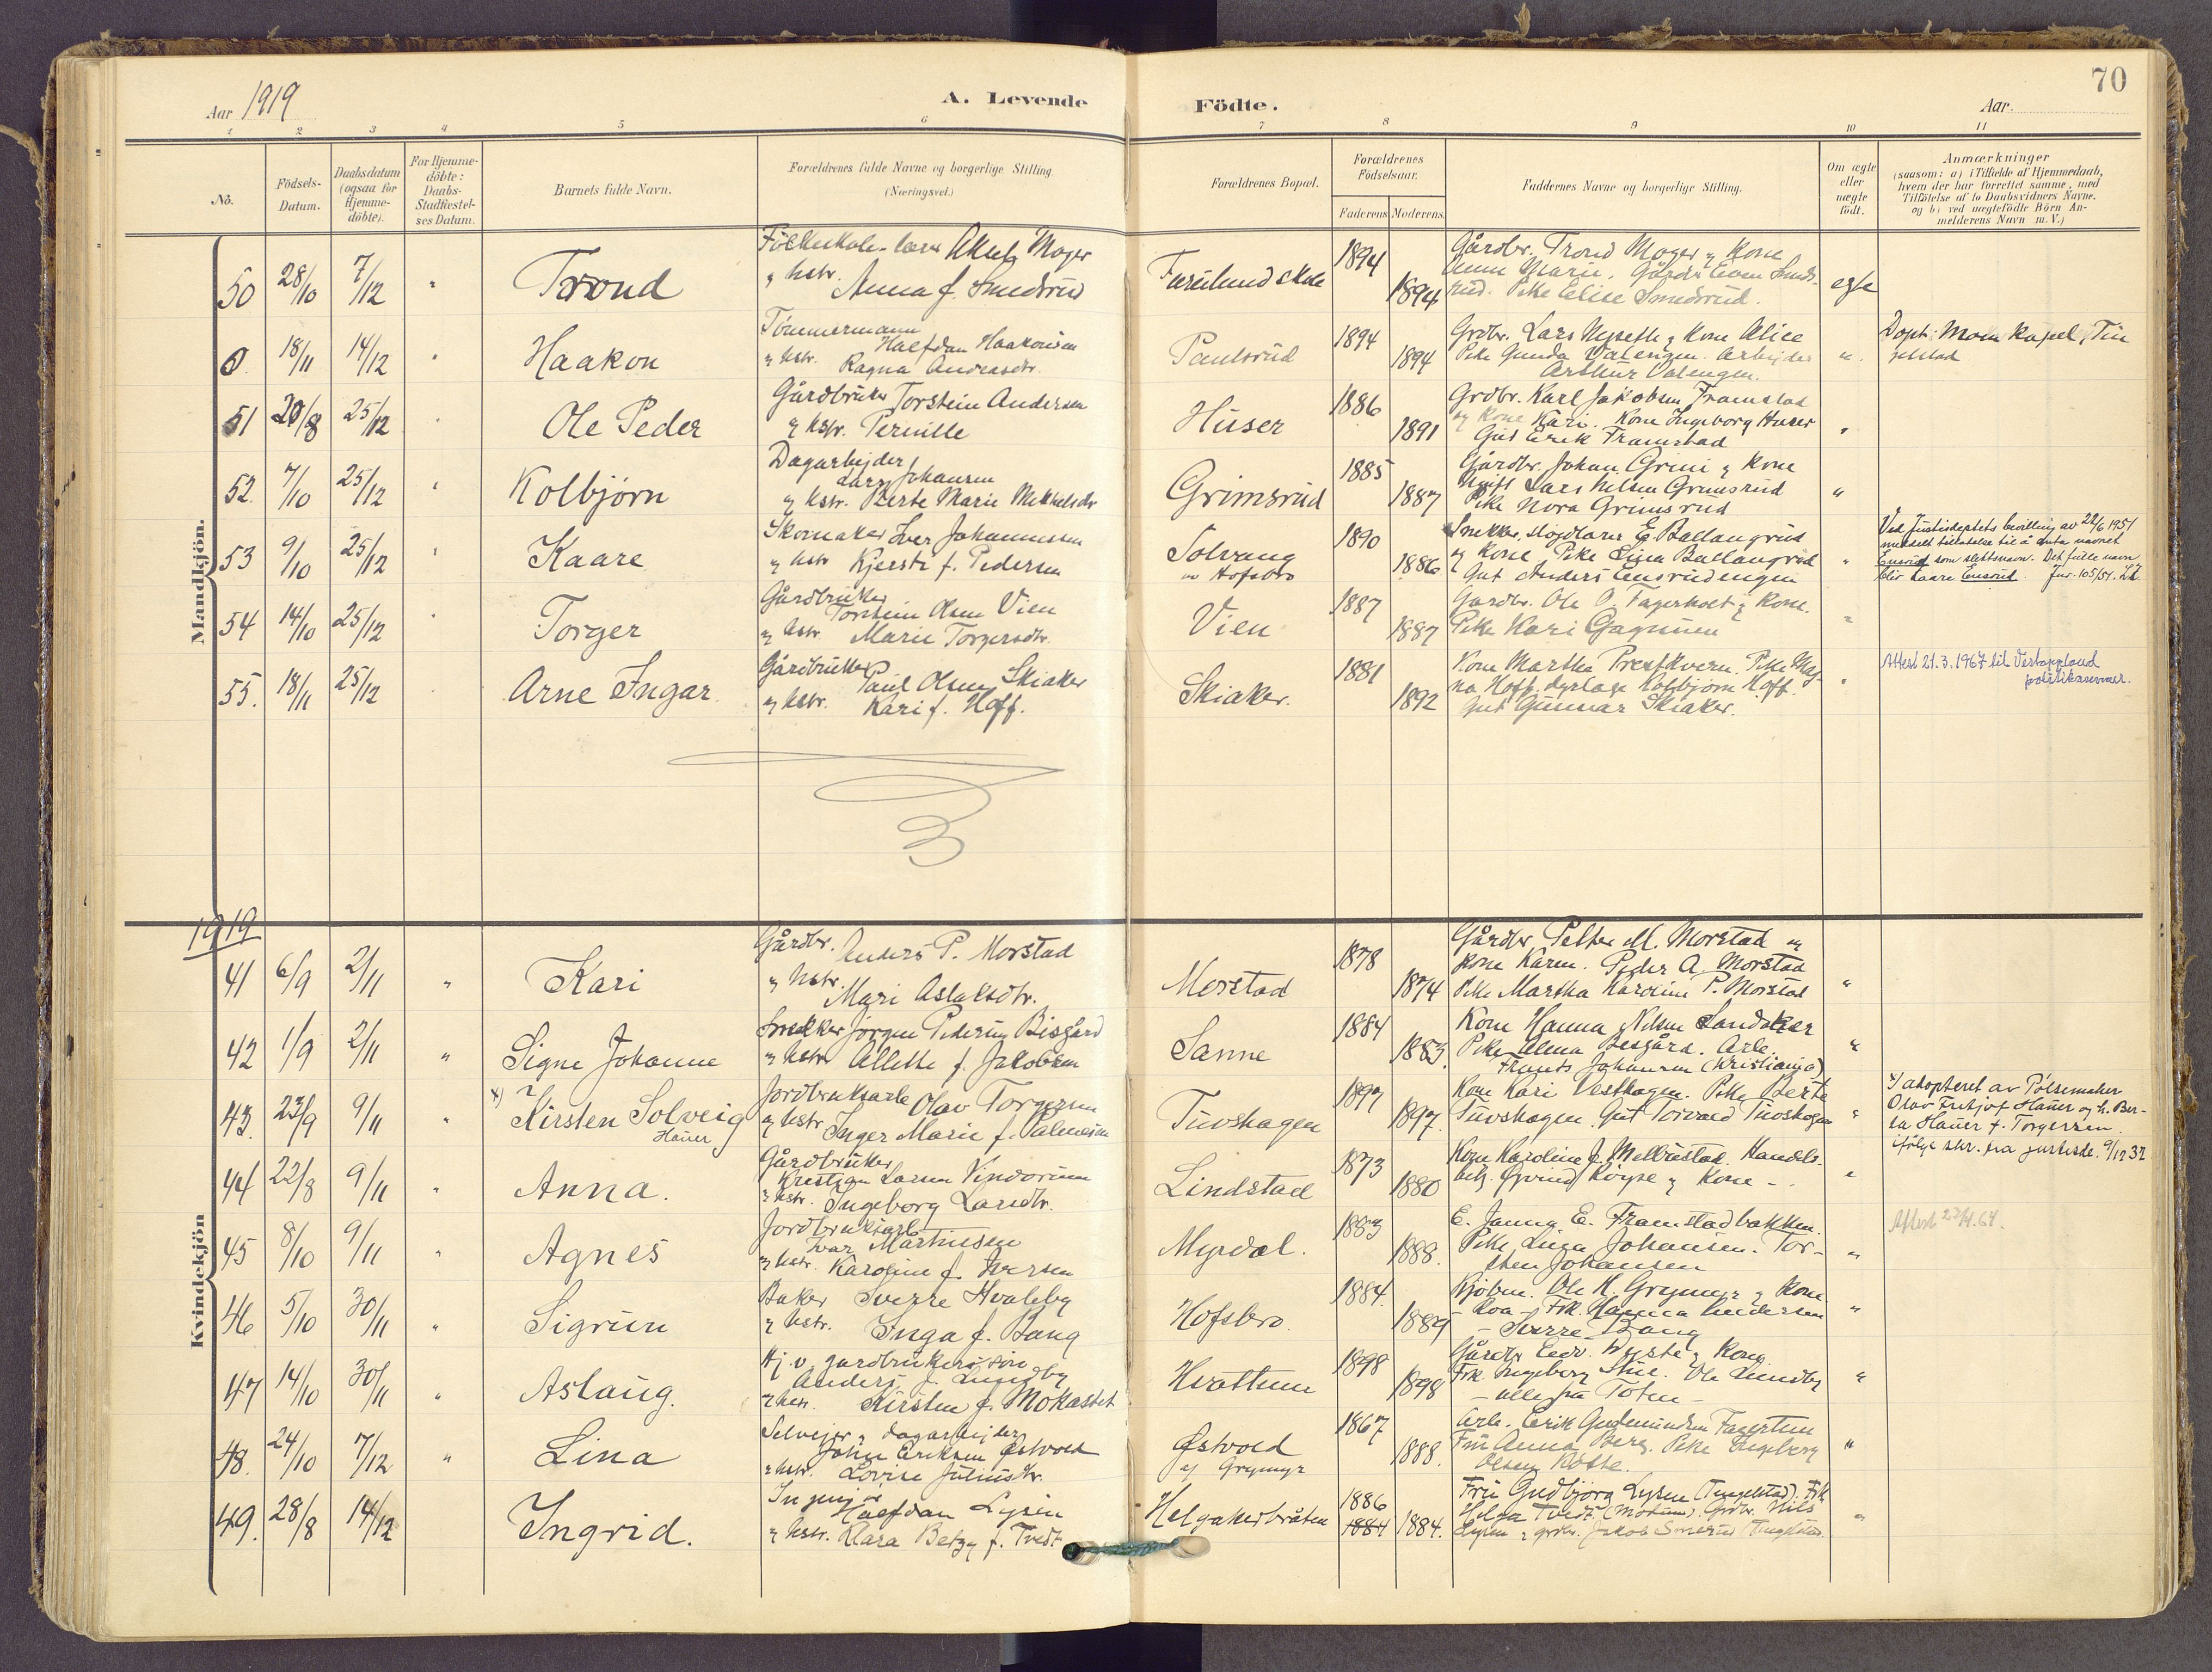 70
Aar 1919
A. Levende Födte.
Aar.
1 2 3 4 5 6 7 8 9 10 11
No.
Födsels-Datum.
Daabsdatum (ogsaa for Hjemme-döbte).
For Hjemme-döbte: Daabs-Stadfæstel-ses Datum.
Barnets fulde Navn.
Forældrenes fulde Navne og borgerlige Stilling.
(Næringsvei.)
Forældrenes Bopæl.
Forældrenes Födselsaar.
Faderens Moderens
Faddernes Navne og borgerlige Stilling.
Om ægte eller uægte födt.
Anmærkninger
(saasom: a) i Tilfælde af Hjemmedaab,
hvem der har forrettet samme, med
Tilföielse af to Daabsvidners Navne,
og b) ved uægtefödte Börn An-
melderens Navn m. V.)
Mandkjön.
50 28/10 7/12 " Trond
Moger
" hstr. Anna f. Smedsrud
1894 1894
Gårdbr. Trond Moger & Kone
Anna Marie. Gårdbr. Even Smeds-
rud. Pike Elise Smedsrud.
egte
0. 18/11 14/12 " Haakon
Tömmermann
Halfdan Haakonsen
" hstr. Ragna Andreasdtr.
Paulsrud
1894 1894
Grdbr. Lars Nyseth & Kone Alice
Pike Gunda Valengen. Arbejder
Arthur Valengen.
"
Döpt: Moen Kapel, Tin
gelstad
51 20/8 25/12 " Ole Peder
Gårdbruker Torstein Andersen
& hstr. Pernille
Huser
1886 1891
Grdbr. Karl Jakobsen Framstad
og Kone Kari. Kone Ingeborg Huser
Gut Erik Framstad
"
52. 7/10 25/12 " Kolbjörn
Dagarbejder
Lars Johansen
& hstr. Berte Marie
Grimsrud
1885 1887
Gårdbr. Johan Grini & Kone
Lars Nilsen Grimsrud
Pike Nora Grimsrud
"
53 9/10 25/12 " Kaare
Skomaker Iver Johannesen
& hstr Kjersti f. Pedersen
Solvang
v. Hofsbro
1890 1886
E. Ballangrud
& Kone Pike Ballangrud
Gut Anders Ensrudengen
"
Ved Justisdeptets bevilling av 22/6 1951
meddelt tillatelse til å anta navnet
Ensrud som slektsnavn. Det fulle navn
blir Kaare Ensrud. Jnr. 105/51.
54 14/10 25/12 " Torger
Gårdbruker
Torstein Olsen Vien
& hstr. Marie Torgersdtr.
Vien
1887 1887
Gårdbr. Ole O. Fagerholt & Kone.
Pike Kari Gagnum
"
55. 18/11 25/12 Arne Ingar.
Gårdbruker
Paul Olsen Skiaker
& hstr. Kari f. Hoff.
Skiaker.
1881 1892
Kone Martha Prestkvern. Pike Mag-
na Hoff. Kolbjörn Hoff.
Gut Gunnar Skiaker.
"
Attest 21.3.1967 til Vestoppland
politikammer.
1919
Kvindekjön
41 6/9 2/11 " Kari
Gårdbr. Anders P. Morstad
& hstr. Mari Aslaksdtr.
Morstad
1878 1874
Gårdbr Petter M. Morstad &
Kone Karen. Peder A. Morstad
Pike Martha Karoline P. Morstad
"
42 1/9 2/11 " Signe Johanne
Snekker Jörgen Pedersen Bisgård
& hstr Allette f. Jakobsen
Sanne
1884 1883
Kone Hanna Nilsen Sandaker
Pike Alma Besgård. Arb.
Johansen (Kristiania)
"
43. 23/9 9/11 " x) Kirsten Solveig
Hauer
Jordbruksarb Olav Torgersen
& hstr Inger Marie f.
Tuvshagen
1897 1897.
Kone Kari Vesthagen. Pike Berte
Tuvshagen. Gut Torvald Tuvshagen
"
x) adopteret av Pölsemaker
Olav Fritjof Hauer og h. Ber-
ta Hauer f. Torgersen.
ifölge skr. fra justisde. 9/12 32
44 22/8 9/11 " Anna.
Gårdbruker
Kristian Larsen Vindorum
& hstr. Ingeborg Larsdtr.
Lindstad
1873 1880
Kone Karoline J. Mellumstad. Handels-
betj. Öyvind & Kone
"
45 8/10 9/11 " Agnes
Jordbruksarb
Ivar Martinsen
& hstr. Karoline f. Iversen
Myrdal.
1883 1888.
E. Janna E. Framstadbakken.
Pike Lina Johansen. Tor-
sten Johansen
"
Attest 22/4.64.
46 5/10 30/11 " Sigrun
Baker Sverre Hvaleby
& hstr. Inga f. Bang
Hofsbro.
1884. 1889
Kjöbm. Ole H. Grymyr & Kone
- Roa - Frk. Hanna Andersen
- Sverre Bang
"
47 14/10 30/11 " Aslaug.
Hj. v. gardbrukers sön
Anders J. Lundby
& hstr. Kirsten f. Mokastet
Hvattum
1898 1898
Gårdbr Edv. & Kone
Frk. Ingeborg Ole Lundby
- alle fra Toten -
"
48. 24/10 7/12 " Lina
Selvejer & dagarbejder
John Eriksen Östvold
& hstr. Lovise Juliusdtr.
Östvold
af Grymyr
1867 1888.
Arb. Erik Gudmundsen Fagertun
Fru Anna Berg. Pike Ingeborg
Olsen
"
49. 28/8 14/12 Ingrid.
Ingeniör
Halfdan Lysen
& hstr. Klara Betzy f. Tvedt
Helgakerbråten
1886 1884 1884.
Fru Gudbjörg Lysen (Tingelstad). Frk.
Helga Tvedt (Modum). Grdbr. Nils
Lysen & grdbr. Jakob Smerud Tingelstad.
"